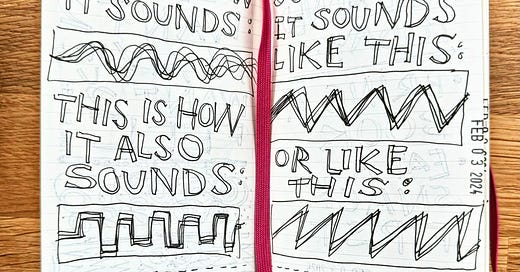 IT SOUNDS:
THIS IS HOW
IT ALSO
SOUNDS:
IT SOUNDS
LIKE THIS:
OR LIKE
THIS:
FEB 03 2024